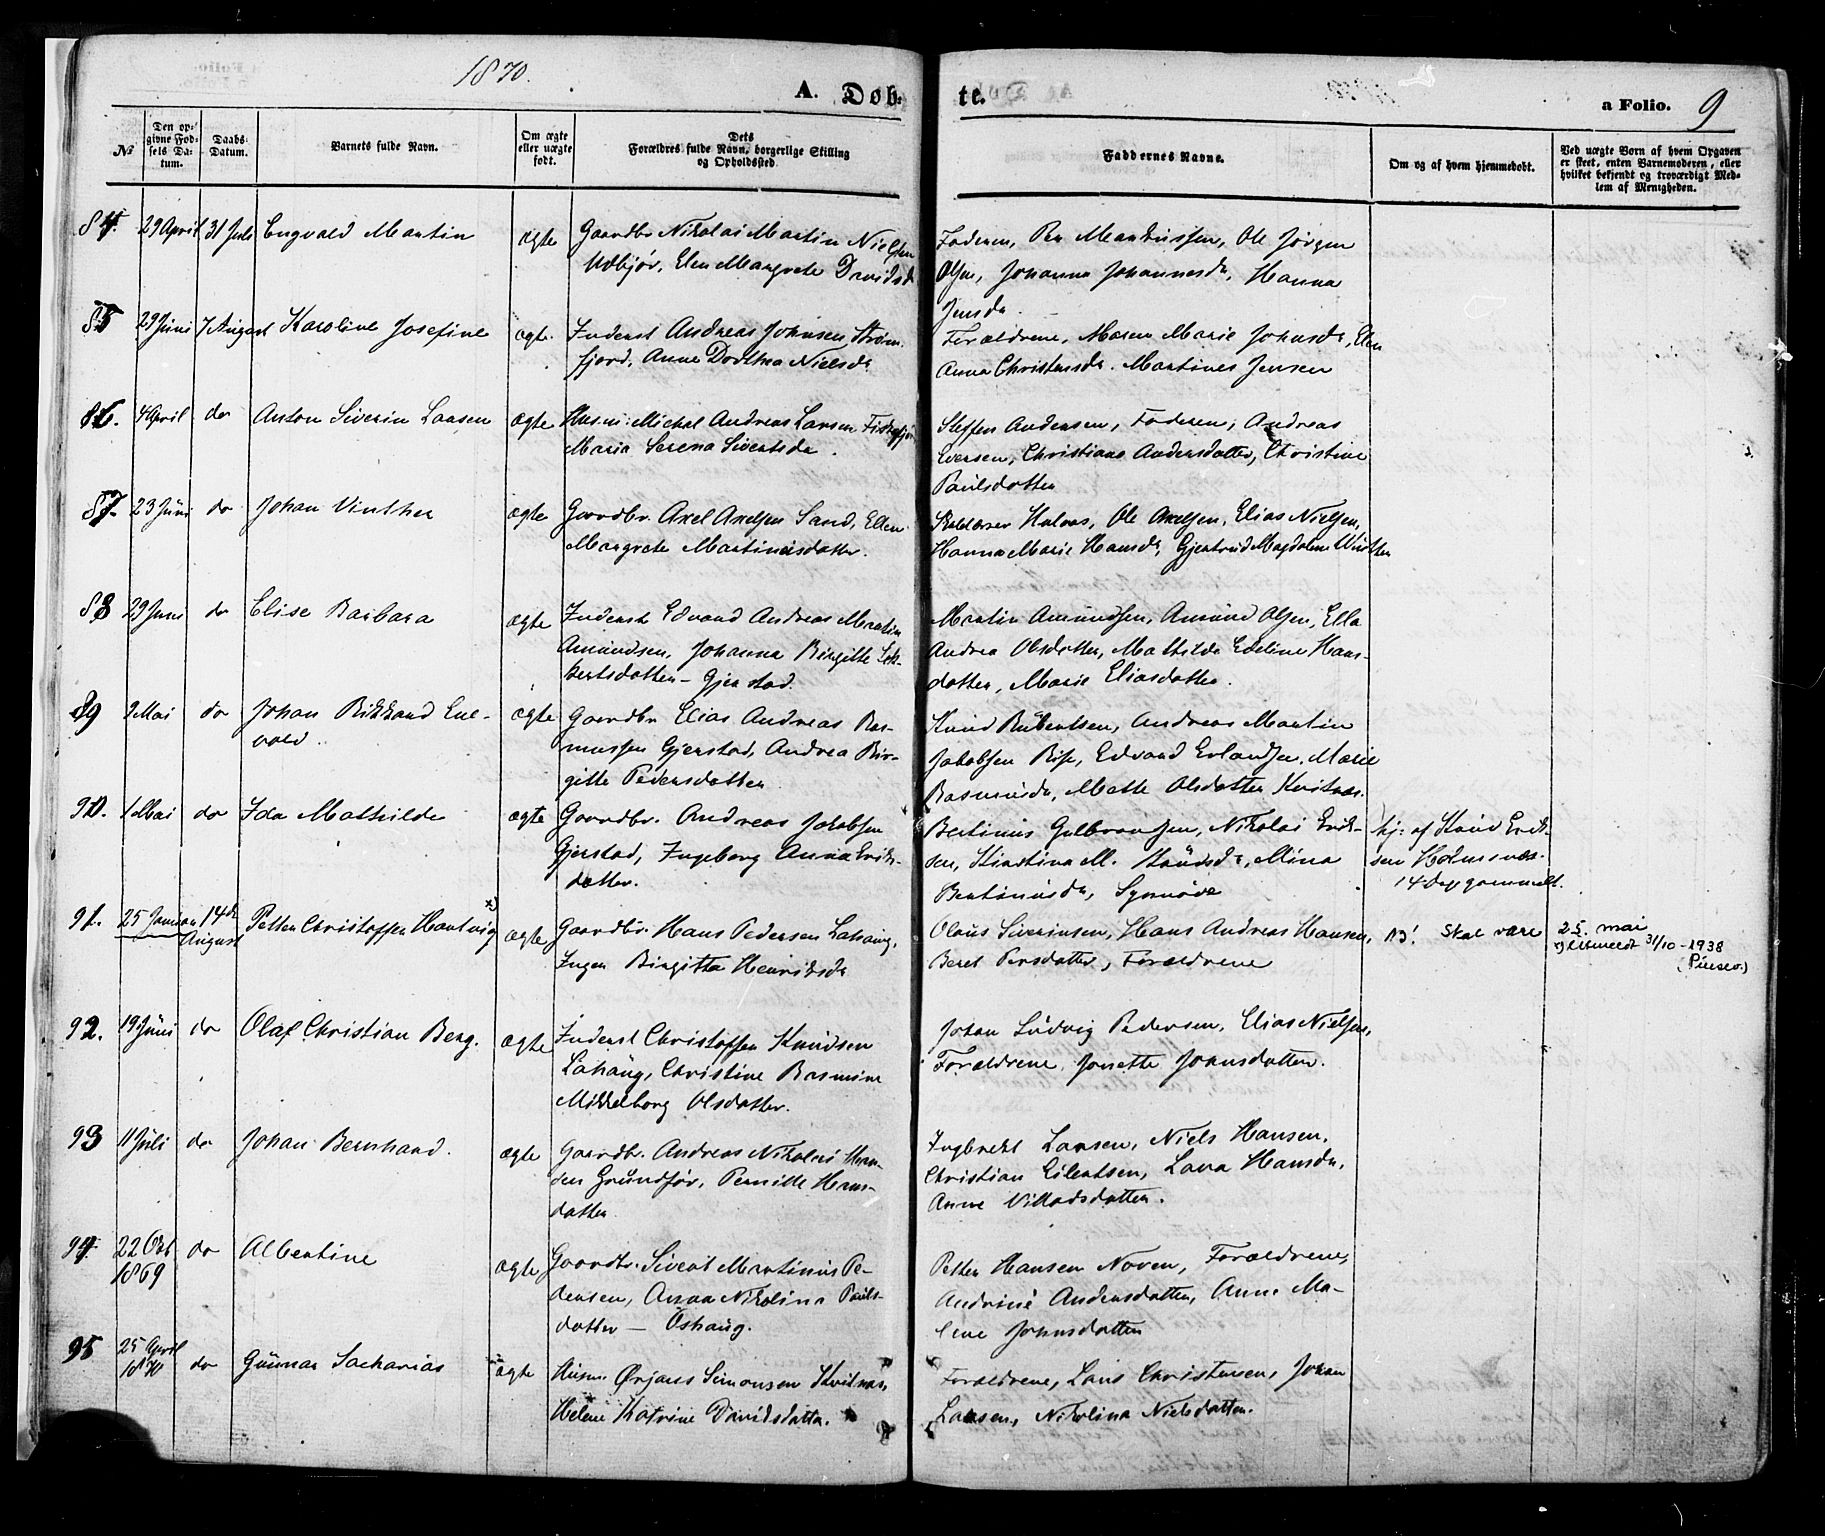 1870.
A. Døb-
te.
a Folio. 9
№
Den op-
givne Fød-
sels Da-
tum.
Daabs-
Datum.
Barnets fulde Navn.
Om ægte
eller uægte
født.
Dets
Forældres fulde Navn, borgerlige Stilling
og Opholdssted.
Faddernes Navne.
Om og af hvem hjemmedøbt.
Ved uægte Børn af hvem Opgaven
er skeet, enten Barnemoderen, eller
hvilket bekjendt og troværdigt Med-
lem af Menigheden.
84. 29 April 31 Juli Engvald Martin ægte Gaardbr Nikolai Martin Nielsen
Udbjør, Elen Margrete Davidsd
Faderen, Per Markussen, Ole Jørgen
Olsen, Johanna Johannesdr, Hanna
Jensdr
85 29 Juni 7 August Karoline Josefine ægte. Inderst Andreas Johnsen Strøm-
fjord, Anne Dorthea Nielsdr
Forældrene, Maren Marie Johnsdr, Elen
Anna Christensdr. Martines Jensen
86. 4 April do Anton Siverin Larsen ægte Husm: Michel Andreas Larsen Fiskefjor
Maria Serena Sivertsdr.
Steffen Andersen, Faderen, Andreas
Eversen, Christiane Andersdatter, Christine
Paulsdatter
87. 23 Juni do Johan Vinther ægte Gaardbr. Axel Axelsen Sand, Ellen
Margrete Martinusdatter.
Halvas, Ole Axelsen, Elias Nielsen,
Hanna Marie Hansdr, Gjertrud Magdalene Winther
88 29 Juni do Elise Barbara ægte Inderst Edvard Andreas Martin
Amundsen, Johanna Birgitte
bertsdatter – Gjerstad.
Martin Amundsen, Amund Olsen, Ella
Andrea Olsdatter, Mathilde Edeline Hans-
datter, Marie Eliasdatter.
89 9 Mai do Johan Rikkard Ene-
vold. ægte Gaardbr Elias Andreas Ras-
mussen Gjerstad, Andrea Bir-
gitte Pedersdatter
Knud Rubertsen, Andreas Martin
Jakobsen Bise, Edvard Erlandsen, Marie
Rasmusdr, Mette Olsdatter
90. 1 Mai do Ida Mathilde ægte Gaardbr. Andreas Jakobsen
Gjerstad, Ingeborg Anna Eriks-
datter.
Bertinius Gulbransen, Nikolai Erik-
sen, Kirstina M. Knudsdr, Mina
Bertiniusdr, Synnøve
hj: af Knud Erik-
sen Holmsnæs.
14 dage gammelt.
91. 25 Januar 14de
August Petter Christoffer Hartvig x) ægte Gaardbr. Hans Pedersen Lahaug,
Inger Birgitta Henriksdr
Olaus Siverinsen, Hans Andreas Hansen,
Beret Persdatter, Forældrene
NB! Skal være 25. mai
x) Utmeldt 31/10 - 1938
(Pinsev.)
92. 19 Juni do Olaf Christian Berg. ægte Inderst Christoffer Knudsen
Lahaug, Christine Rasmine
Mikkelborg Olsdatter.
Johan Ludvig Pedersen, Elias Nielsen,
Forældrene, Jonette Johnsdatter.
93 11 Juli do Johan Bernhard. ægte Gaardb. Andreas Nikolai
den Grundfør, Pernille Hans-
datter
Ingbrekt Larsen, Niels Hansen,
Christian Eilertsen, Lava Hansdr,
Anne Villadsdatter.
94 22 Okt
1869 do Albertine ægte Gaardbr. Sivert Martinus Pe-
dersen, Anna Nikolina Pauls-
datter — Oshaug.
Petter Hansen Noven, Forældrene,
Andrine Andersdatter, Anne Ma-
lene Johnsdatter
95 25 April
1870 do Gunnar Sacharias ægte Husm. Ørjans Simonsen Kvitnæs,
Helene Katrine Davidsdatter.
Forældrene, Lars Christensen, Johan
Larsen, Nikolina Nielsdatter.